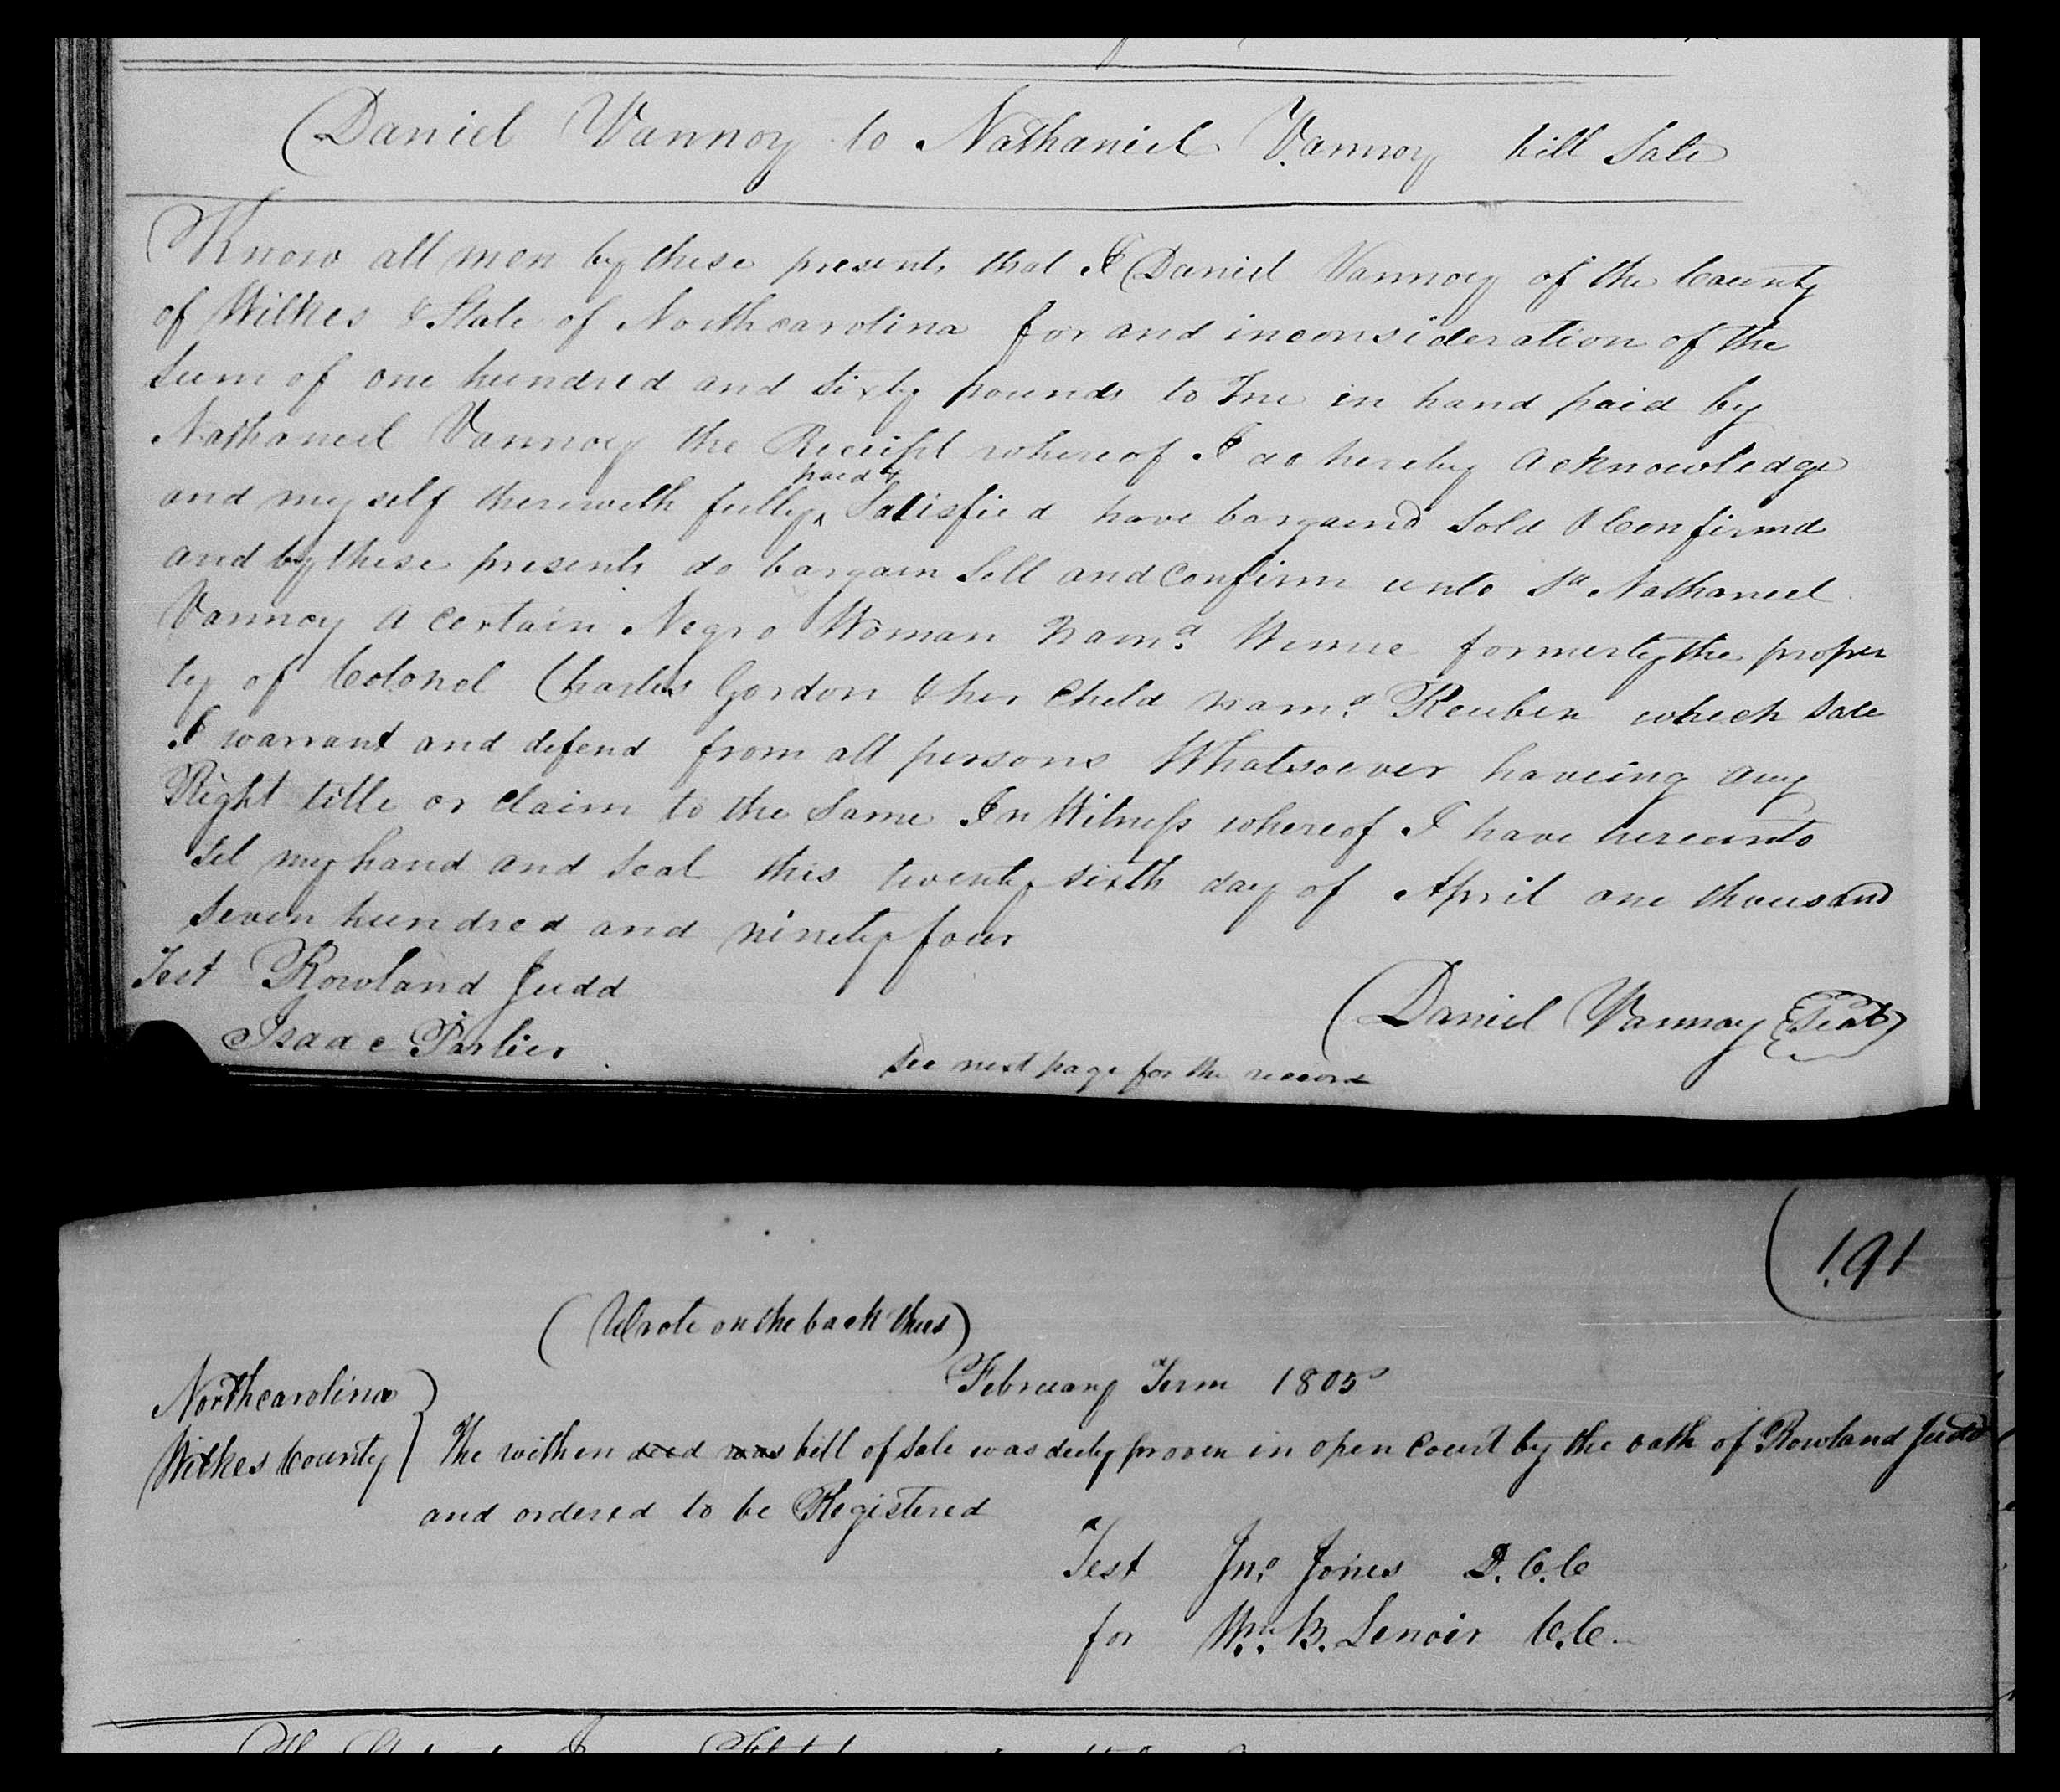 Daniel Vannoy to Nathaniel Vannoy bill Sale
Know all men by these presents that I Daniel Vannoy of the County
of Wilkes & State of Northcarolina for and inconsideration of the
Sum of one hundred and sixty pounds to me in hand paid by
Nathaniel Vannoy the Receipt whereof I do hereby acknowledge
paid &
and my self therewith fully ^ Satisfied have bargaind Sold & Confirmd
and by these presents do bargain Sell and Confirm unto sd Nathaniel
Vannoy a certain Negro Woman namd. Winnie formerly the proper
ty of Colonol Charles Gordon & her Child namd. Reuben which Sale
I warrant and defend from all persons Whatsoever haveing any
Right title or claim to the Same In Witness whereof I have hereunto
Set my hand and Seal this twenty sixth day of April one thousand
Seven hundred and ninety four
Test Rowland Judd
Daniel Vannoy Seal
Isaac Parlier
See next page for the record
191
(Wrote on the back thus)
February Term 1805
Northcarolina
Wilkes County
The within deed was bill of Sale was duly proven in open Court by the oath of Rowland Judd
and ordered to be Registered
Test Jno. Jones D.C.C
for Wm. B. Lenoir C.C.